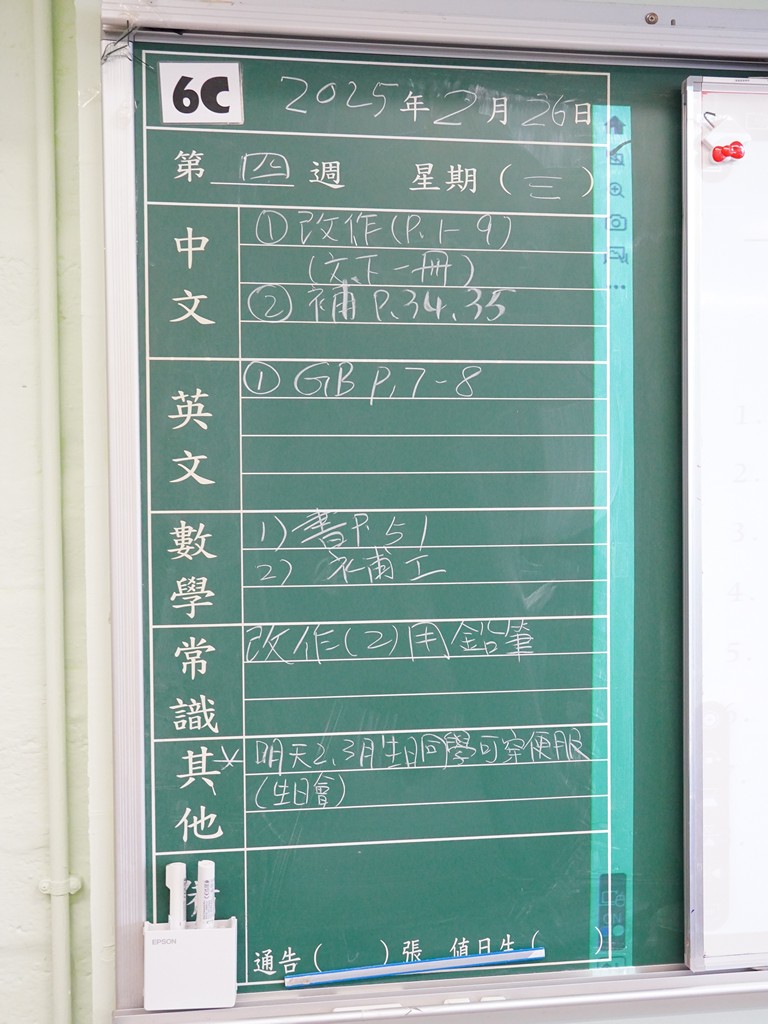 6C 2025年2月26日
第四週 星期(三)
中文
①改作(P.1-9)
(文下一冊)
②補P.34.35
英文
①GB P.7-8
數學
1)書P.51
2)補工
常識
改作(2)用鉛筆
其他
*明天2.3月生日同學可穿便服
(生日會)
EPSON
通告( )張 值日生( )